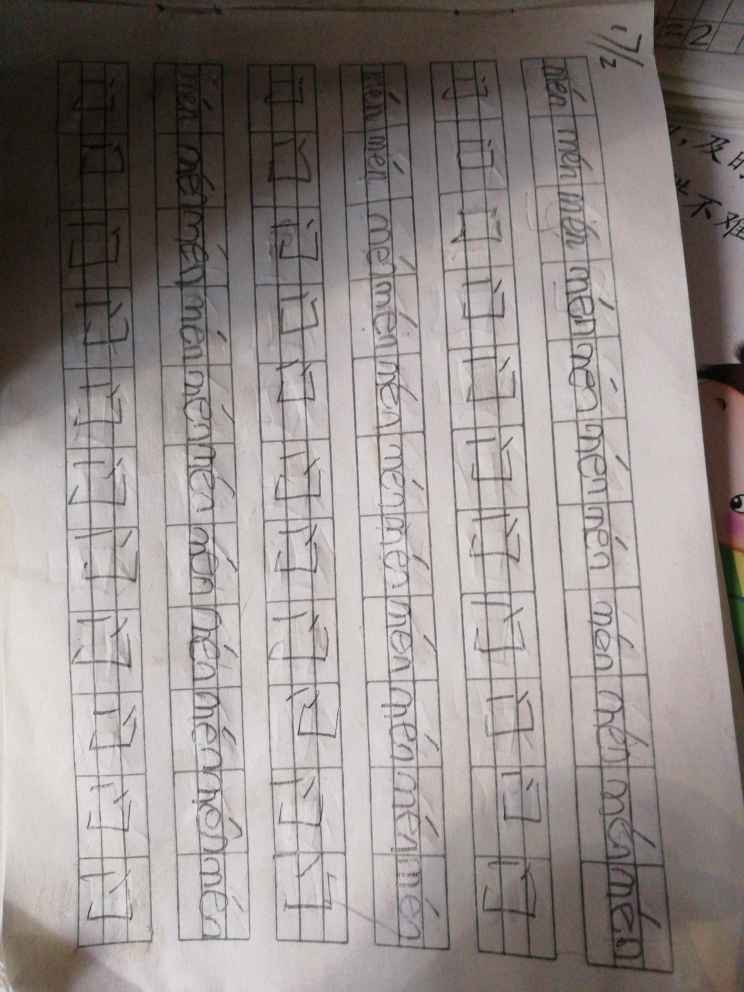 17/2
mén mén mén mén mén mén mén mén mén mén mén
门 门 门 门 门 门 门 门 门 门 门
mén mén mén mén mén mén mén mén mén mén mén
门 门 门 门 门 门 门 门 门 门 门
mén mén mén mén mén mén mén mén mén mén mén
门 门 门 门 门 门 门 门 门 门 门
=2
，及时
不难